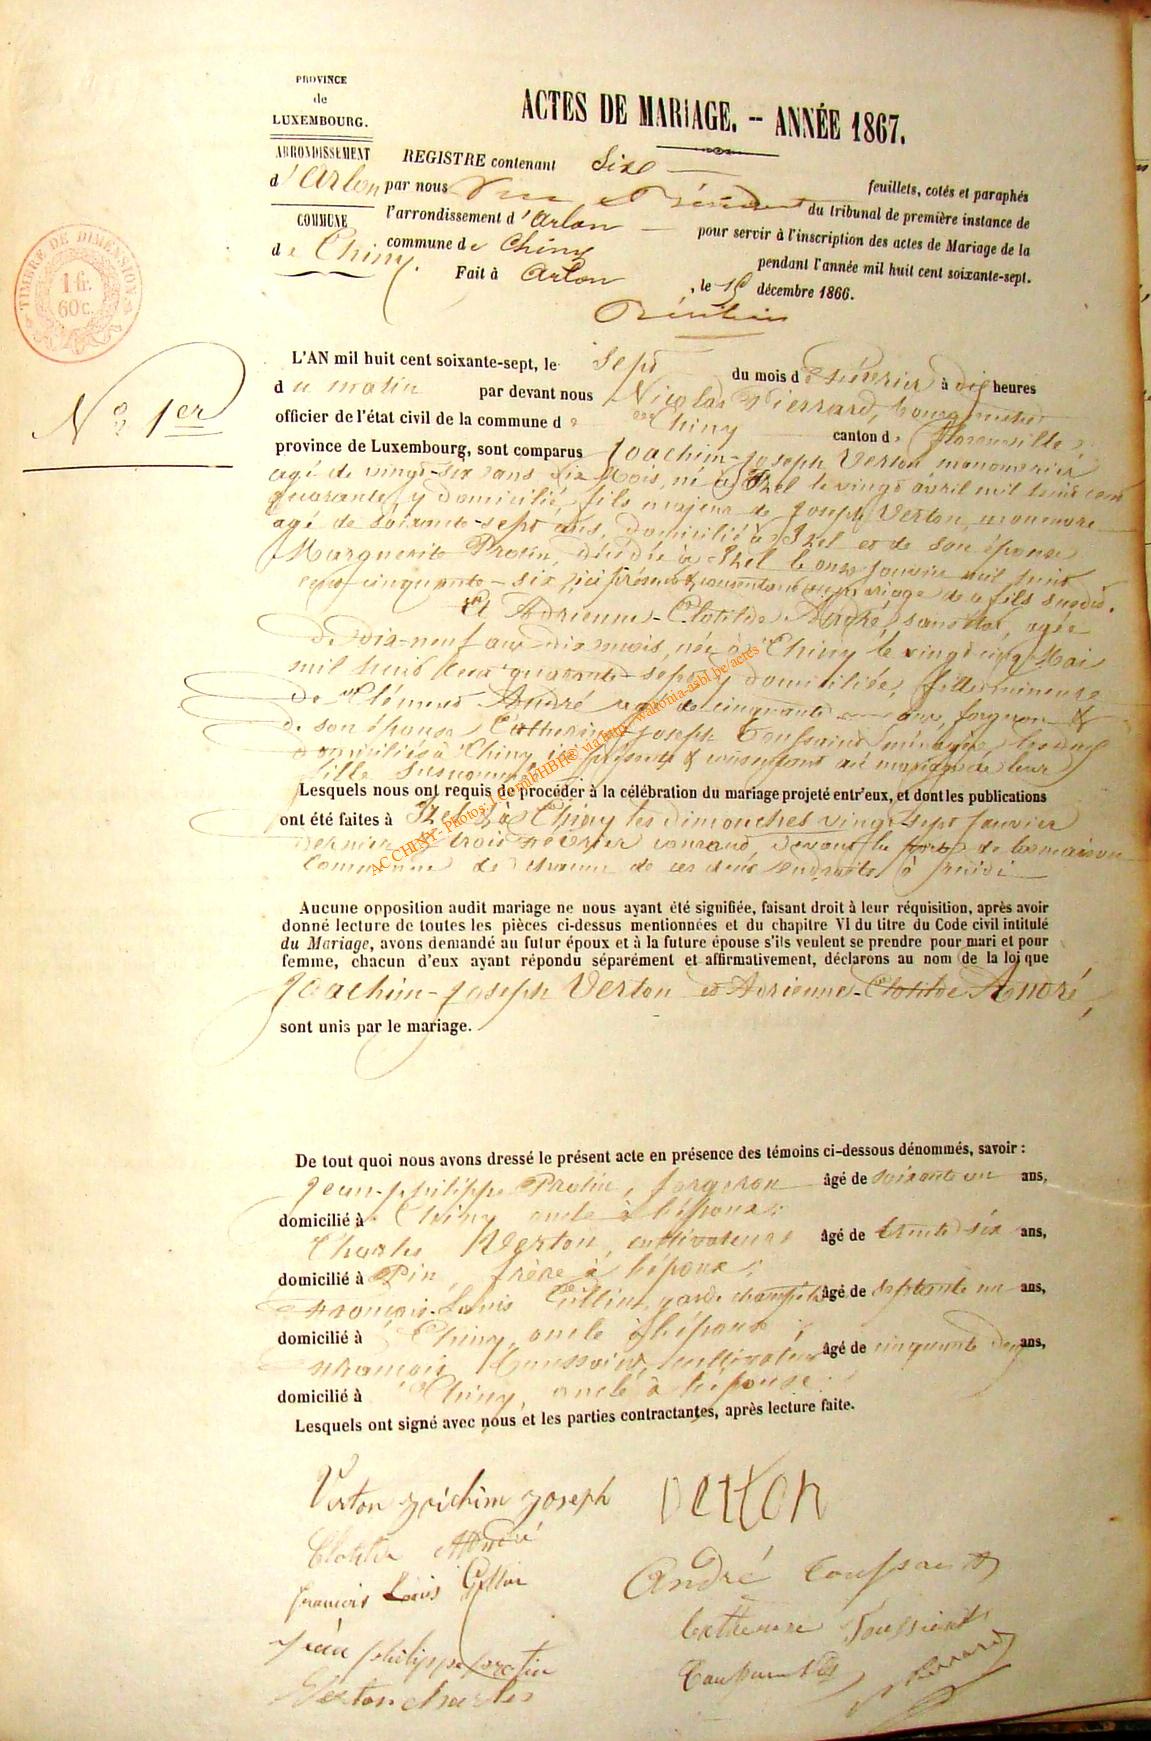 PROVINCE
de
LUXEMBOURG.
ARRONDISSEMENT
d'Arlon
COMMUNE
de Chiny.
TIMBRE DE DIMENSION
1 fr.
60 c.
ACTES DE MARIAGE. -- ANNÉE 1867.
REGISTRE contenant Six feuillets, cotés et paraphés
par nous du tribunal de première instance de
l'arrondissement d'Arlon pour servir à l'inscription des actes de Mariage de la
commune de Chiny pendant l'année mil huit cent soixante-sept.
Fait à Arlon, le 15 décembre 1866.
N° 1er
L'AN mil huit cent soixante-sept, le Sept du mois de février à dix heures
du matin par devant nous Nicolas Pierrard, bourgmestre
officier de l'état civil de la commune de Chiny canton de Florenville,
province de Luxembourg, sont comparus Joachim-Joseph Verton manouvrier
agé de vingt-six ans dix mois, né à Izel le vingt avril mil huit cent
quarante, y domicilié, fils majeur de Joseph Verton, manouvre
agé de soixante-sept ans, domicilié à Izel et de son épouse
Marguerite Protin, décédée à Izel le onze janvier mil huit
cent cinquante-six, ici présent & consentant au mariage de fils susdit.
Et Adrienne-Clotilde André, sans état, agée
de dix-neuf ans mois, née à Chiny le vingt cinq Mai
mil huit cent quarante-sept, y domiciliée, fille mineure
de Clément André agé de cinquante ans, forgeron &
de son épouse Catherine Joseph Toussaint, ménagère,
domiciliés à Chiny, ici présents & consentant au mariage de leur
fille susnommée
Lesquels nous ont requis de procéder à la célébration du mariage projeté entr'eux, et dont les publications
ont été faites à Izel & à Chiny les dimanches vingt-sept janvier
dernier & trois février courant, devant la porte de la maison
commune de chacun de ces deux endroits, à midi
Aucune opposition audit mariage ne nous ayant été signifiée, faisant droit à leur réquisition, après avoir
donné lecture de toutes les pièces ci-dessus mentionnées et du chapitre VI du titre du Code civil intitulé
du Mariage, avons demandé au futur époux et à la future épouse s'ils veulent se prendre pour mari et pour
femme, chacun d'eux ayant répondu séparément et affirmativement, déclarons au nom de la loi que
Joachim-Joseph Verton et Adrienne-Clotilde André,
sont unis par le mariage.
De tout quoi nous avons dressé le présent acte en présence des témoins ci-dessous dénommés, savoir :
Jean-Philippe Protin, forgeron âgé de soixante un ans,
domicilié à Chiny, oncle à l'époux;
Charles Verton, cultivateur âgé de trente six ans,
domicilié à Pin, frère à l'époux;
François-Louis Gillin, garde champêtre âgé de septante un ans,
domicilié à Chiny, oncle à l'époux;
François Toussaint, cultivateur âgé de cinquante deux ans,
domicilié à Chiny, oncle à l'épouse.
Lesquels ont signé avec nous et les parties contractantes, après lecture faite.
Verton joichim joseph verton
Clotilde André
André Toussaint
francois Louis Gillin
Catherine Toussient
jean philippe protin
Toussaint
Verton charles
Pierrard
AC CHINY - Photos: LDemblHBH© via http://wallonia-asbl.be/actes